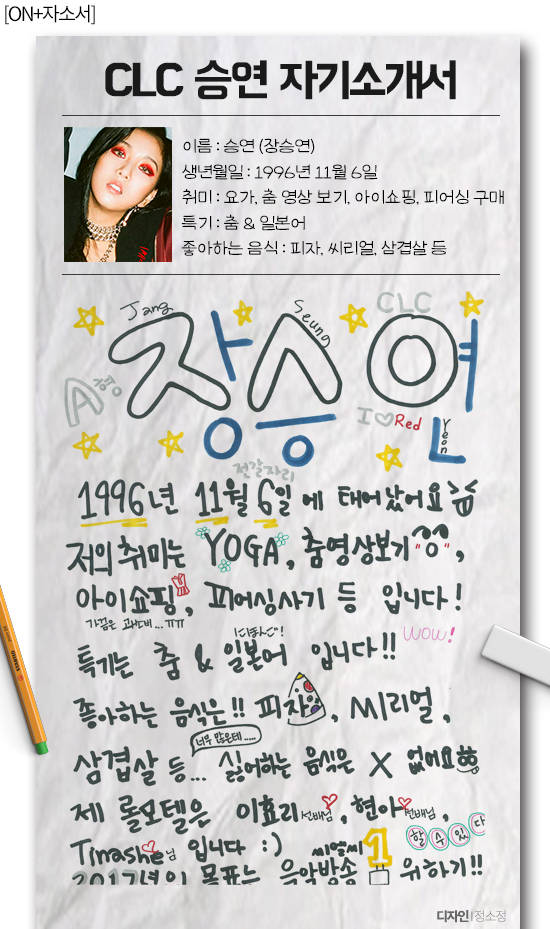 [ON+자소서]
CLC 승연 자기소개서
이름 : 승연 (장승연)
생년월일 : 1996년 11월 6일
취미 : 요가, 춤 영상 보기, 아이쇼핑, 피어싱 구매
특기 : 춤 & 일본어
좋아하는 음식 : 피자, 씨리얼, 삼겹살 등
Jang Seung CLC
장승연
A형
I Red Yeon
전갈자리
1996년 11월 6일에 태어났어요
저의 취미는 YOGA, 춤영상보기,
아이쇼핑, 피어싱사기 등 입니다!
가끔은 과소비...ㅠㅠ にほんご! WOW!
특기는 춤 & 일본어 입니다!!
좋아하는 음식은!! 피자, 씨리얼,
너무 많은데.....
삼겹살 등... 싫어하는 음식은 X 없어요
제 롤모델은 이효리 선배님, 현아 선배님,
할 수 있다
Tinashe님 입니다 :)
씨엘씨
2017년의 목표는 음악방송 1위하기!!
디자인 | 정소정